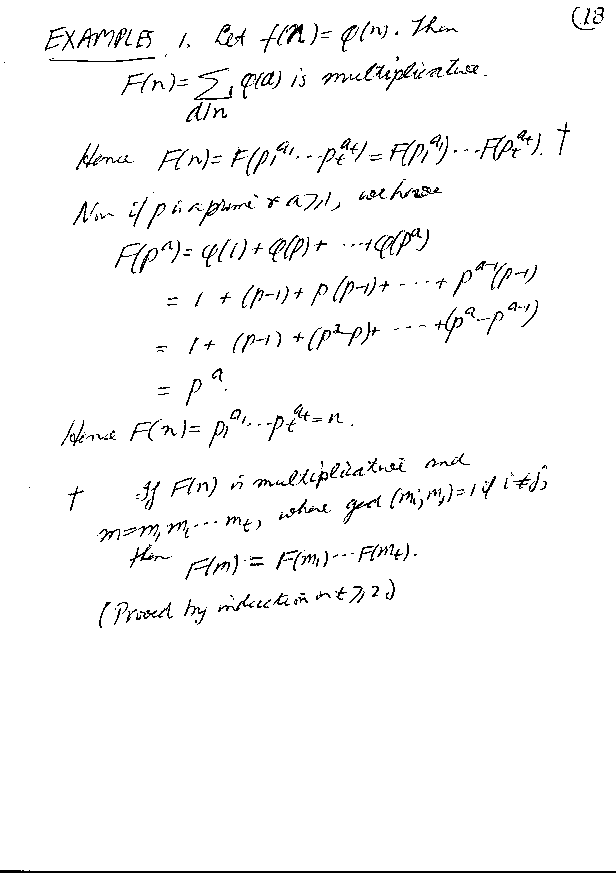 (18
EXAMPLES 1. Let f(n) = φ(n). Then
F(n) = ∑_{d|n} φ(d) is multiplicative.
Hence F(n) = F(p₁^{a₁} ⋯ p_t^{a_t}) = F(p₁^{a₁}) ⋯ F(p_t^{a_t}). †
Now if p is a prime & a ≥ 1, we have
F(p^a) = φ(1) + φ(p) + ⋯ + φ(p^a)
= 1 + (p-1) + p(p-1) + ⋯ + p^{a-1}(p-1)
= 1 + (p-1) + (p²-p) + ⋯ + (p^a - p^{a-1})
= p^a.
Hence F(n) = p₁^{a₁} ⋯ p_t^{a_t} = n.
† If F(n) is multiplicative and
m = m₁ m₂ ⋯ m_t, where gcd(m_i, m_j) = 1 if i ≠ j,
then
F(m) = F(m₁) ⋯ F(m_t).
(Proved by induction on t ≥ 2.)